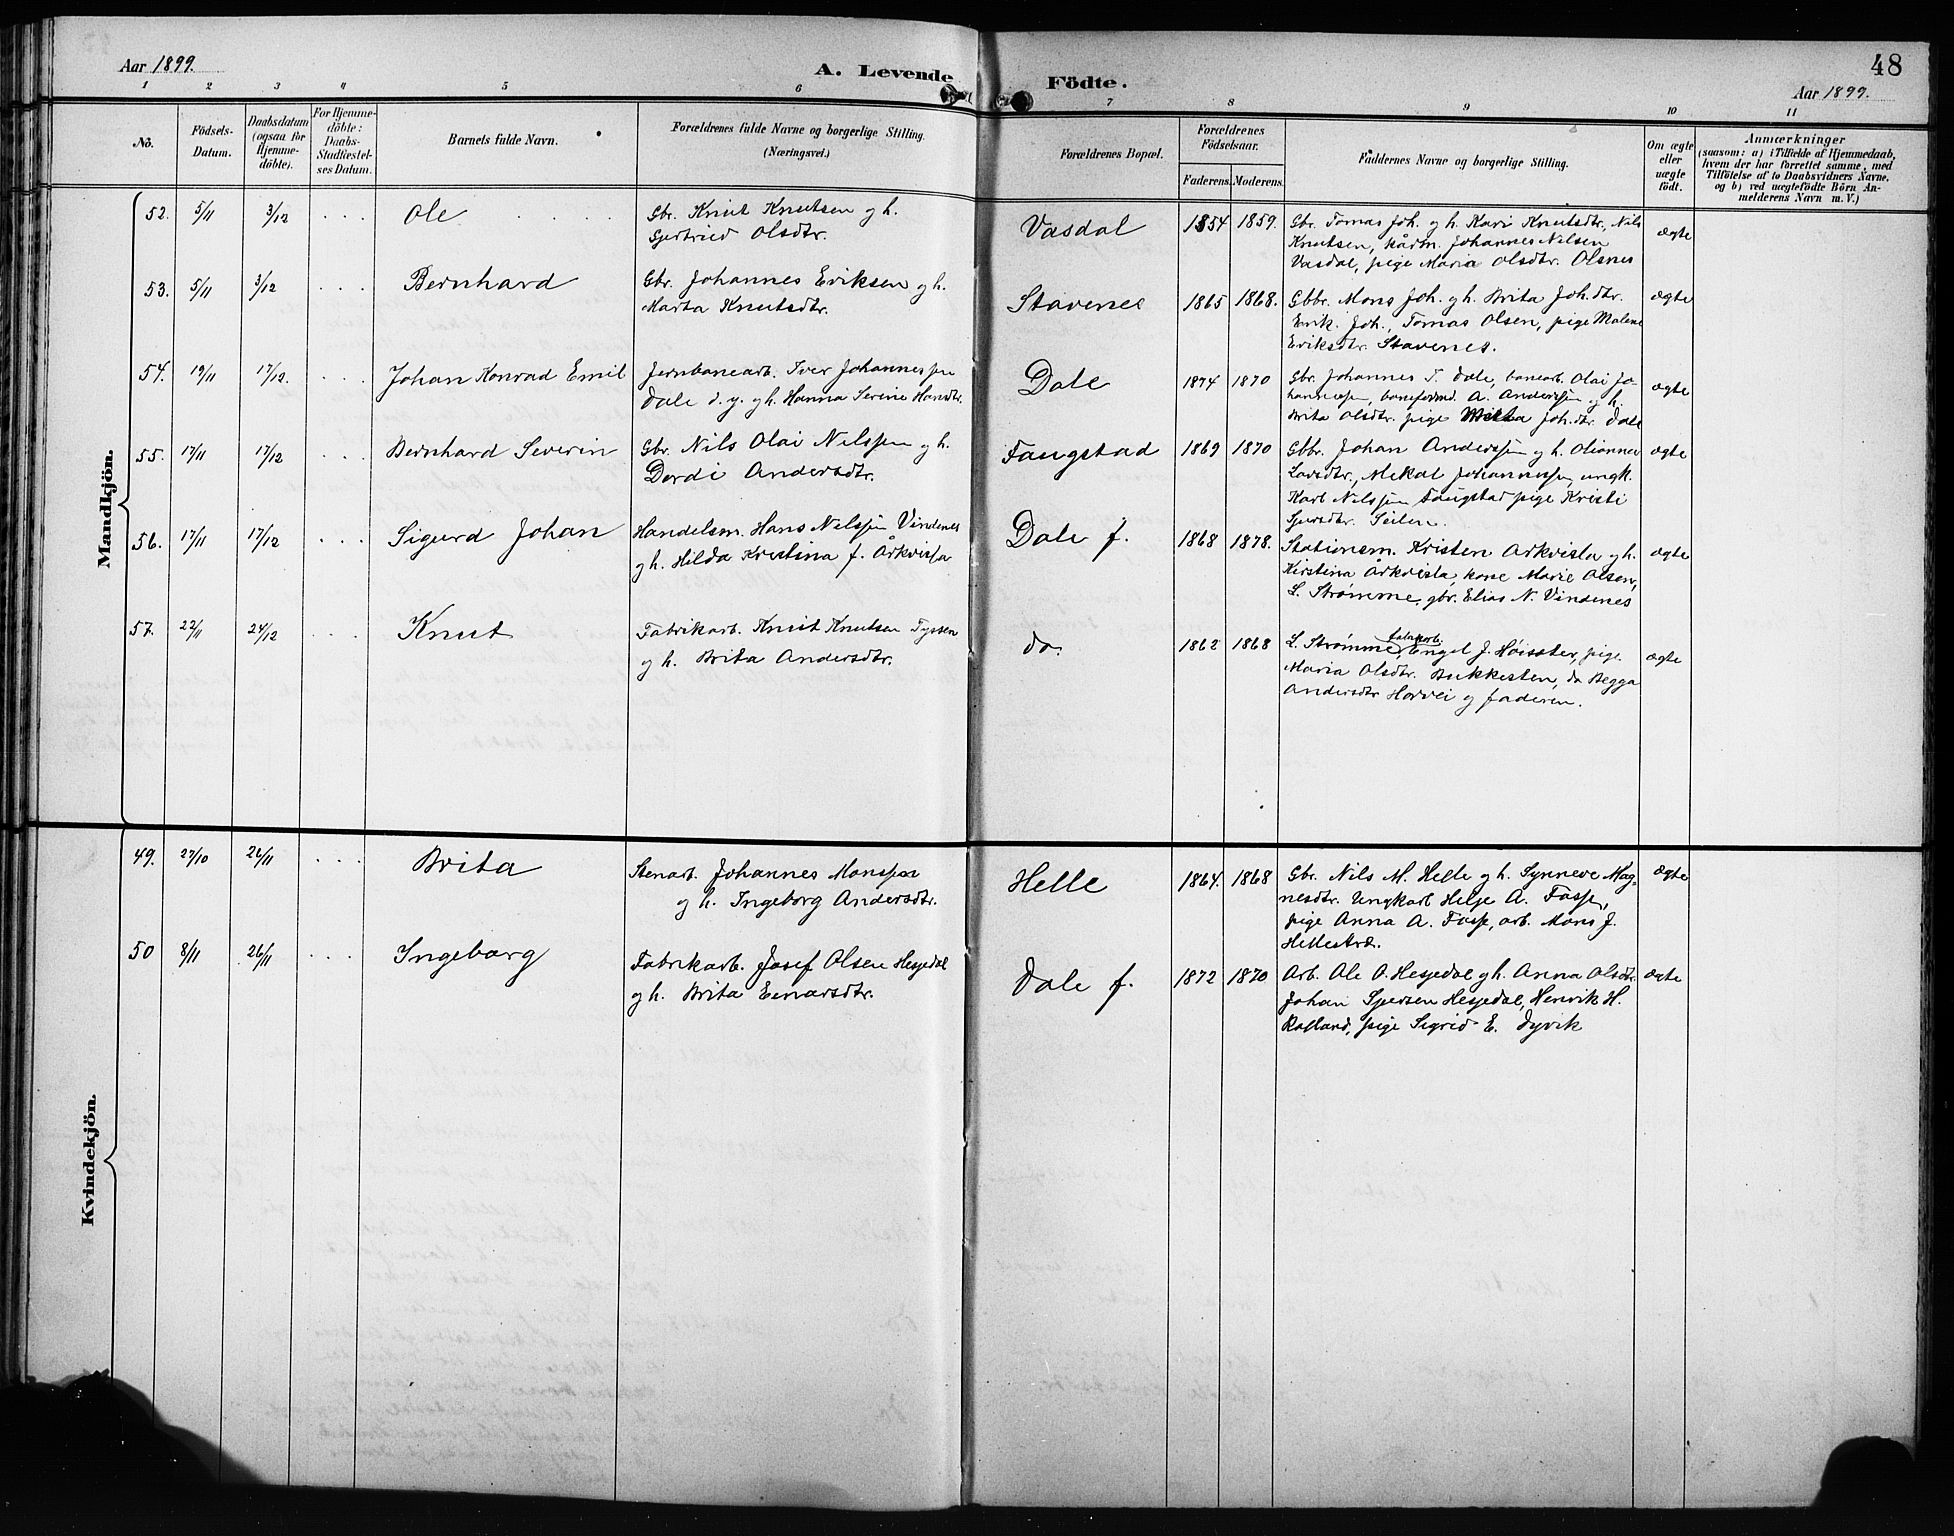 Aar 1899.
A. Levende
Födte.
48
Aar 1899.
1 2 3 4 5 6 7 8 9 10 11
No.
Födsels-
Datum.
Daabsdatum
(ogsaa for
Hjemme-
döbte).
For Hjemme-
döbte:
Daabs-
Stadfæstel-
ses Datum.
Barnets fulde Navn.
Forældrenes fulde Navne og borgerlige Stilling.
(Næringsvei.)
Forældrenes Bopæl.
Forældrenes
Födselsaar.
Faderens. Moderens.
Faddernes Navne og borgerlige Stilling.
Om ægte
eller
uægte
födt.
Anmærkninger
(saasom: a) i Tilfælde af Hjemmedaab,
hvem der har forrettet samme, med
Tilföielse af to Daabsvidners Navne,
og b) ved uægtefödte Börn An-
melderens Navn m. V.)
Mandkjön.
52. 5/11 3/12 . . . Ole
Gbr. Knut Knutsen og h.
Gjertried Olsdtr.
Vasdal 1854 1859.
Gbr. Tomas Joh. og h. Kari Knutsdtr, Nils
Knutsen, Johannes Nilsen
Vasdal, pige Maria Olsdtr. Olsnes
ægte
53. 5/11 3/12 . . . Bernhard
Gbr. Johannes Eriksen og h.
Marta Knutsdtr.
Stavenes 1865 1868.
Gbbr. Mons Joh. og h. Brita Joh.dtr.
Erik. Joh., Tomas Olsen, pige Malene
Eriksdtr. Stavenes.
ægte
54. 19/11 17/12. . . . Johan Konrad Emil
Jernbanearb. Iver Johannessen
Dale d. y. og h. Hanna Serine Hansdtr.
Dale 1874 1870
Gbr. Johannes T. Dale, banearb. Olai Jo-
hannessen, baneformd. A. Anderssen og h.
Brita Olsdtr. pige Joh.dtr. Dale
ægte
55. 17/11 17/12 . . . Bernhard Severin
Gbr. Nils Olai Nilssen og h.
Dordi Andersdtr.
Fangstad 1869 1870
Gbbr. Johan Anderssen og h. Olianna
Larsdtr, Mikal Johannessen, ungk.
Karl Nilssen Fangstad pige Kristi
Sjursdtr. Seilen.
ægte
56. 17/11 17/12 . . . Sigurd Johan
Handelsm. Hans Nilssen Vindenes
og h. Hilda Kristina f. Årkvisla
Dale f. 1868 1878.
Stationsm. Kristen Arkvisla og h.
Kirstina Årkvisla, kone Marie Olsen,
L. Strømme, gbr. Elias N. Vindenes
ægte
57. 22/11 24/12 . . . Knut
Fabrikarb. Knut Knutsen Tyssen
og h. Brita Andersdtr.
do. 1862 1868
fabrikarb.
L. Strømme, Engel J. Høisæter, pige
Maria Olsdtr. Bukkesten, do Begga
Andersdtr Horvei og faderen.
ægte
Kvindekjön.
49. 27/10 26/11 . . . Brita
Stenarb. Johannes Monssen
og h. Ingeborg Andersdtr.
Helle 1864. 1868
Gbr. Nils M. Helle og h. Synneve Mag-
nesdtr. Ungkarl Helje A. Fosse,
pige Anna A. Fosse, arb. Mons J.
Hellestræ.
ægte
50 8/11 26/11 . . . Ingeborg
Fabrikarb. Josef Olsen Hesjedal
og h. Brita Einarsdtr.
Dale f. 1872 1870
Arb. Ole O. Hesjedal og h. Anna Olsdtr.
Johan Sjursen Hesjedal, Henrik H.
Rolland, pige Sigrid E. Dyvik
ægte